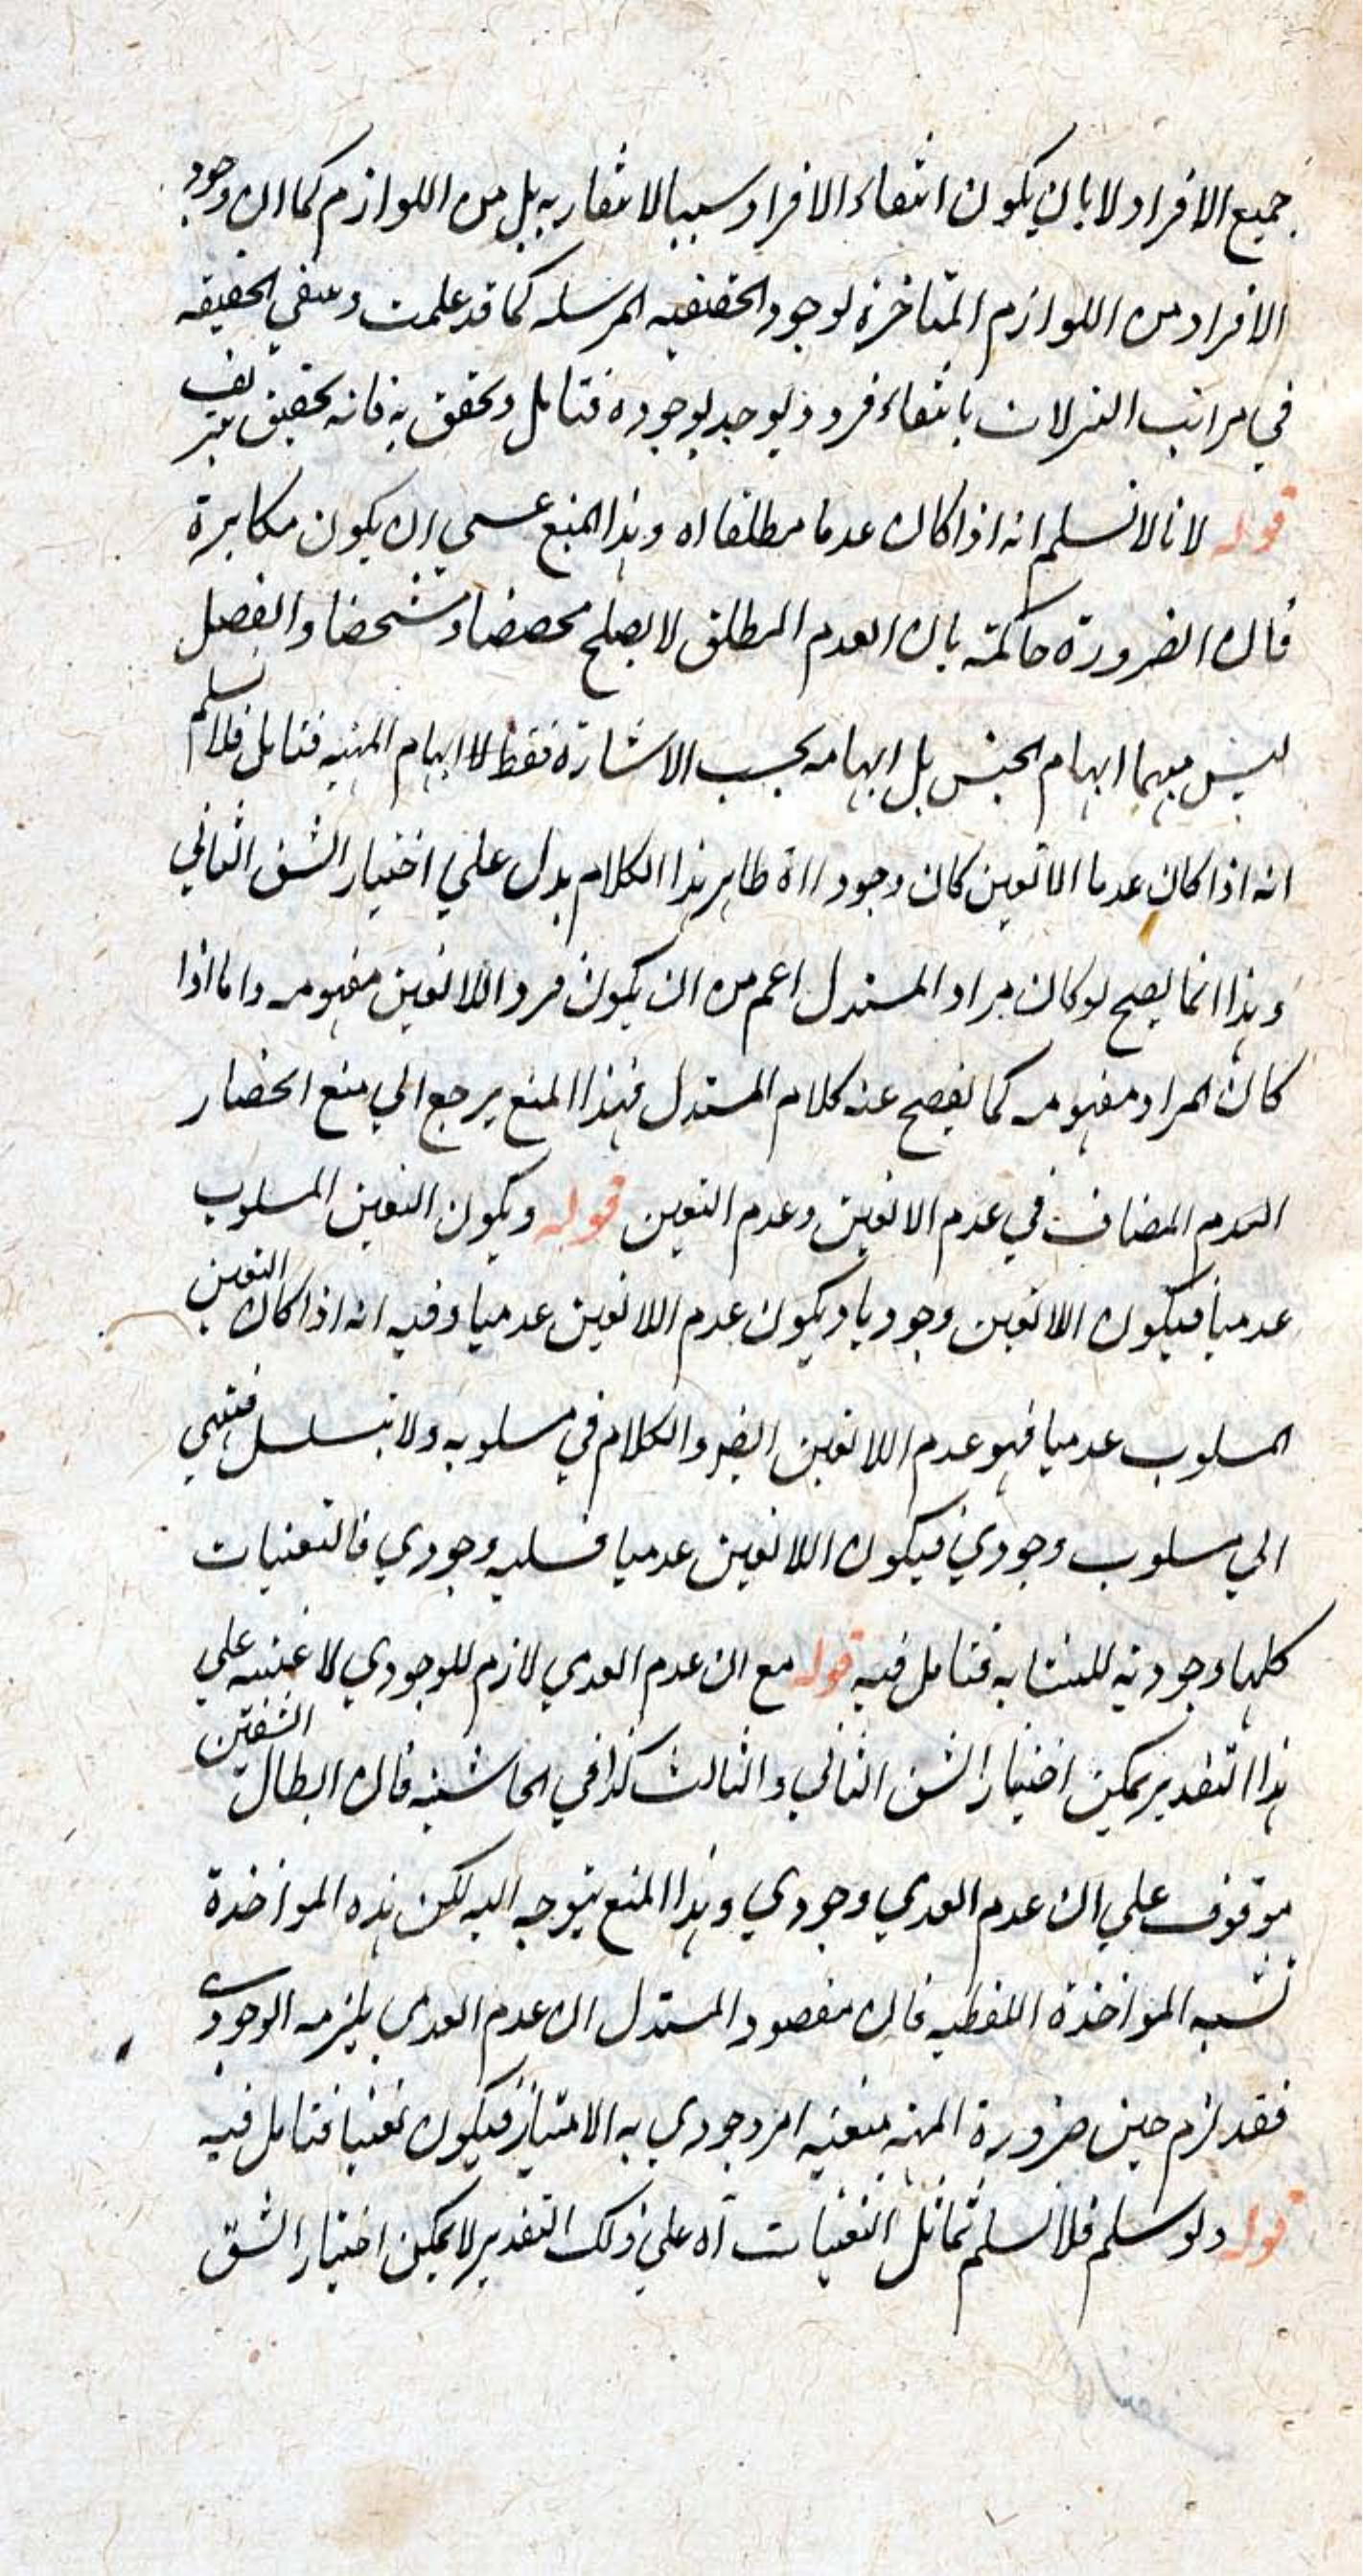 جميع الافراد لا بان يكون انتفاء الافراد سببا لانتفائه بل من اللوازم كما ان وجود
الافراد من اللوازم المتاخرة لوجود الحقيقيه المرسله كما قد علمت وينتفي الحقيقه
في مراتب التنزلات بانتفاء فرد ويوجد بوجوده فتامل وتحقق به فانه تحقيق شريف
قوله لانا لا نسلم انه اذا كان عدما مطلقا اه وهذا المنع عسي ان يكون مكابرة
فان الضرورة حاكمة بان العدم المطلق لا يصلح مخصصا ومشخصا والفصل
ليس مبهما ابهام الجنس بل ابهامه بحسب الاشارة فقط لا ابهام المهيه فتامل فلا نسلم
انه اذا كان عدما للاتعين كان وجوديا اه ظاهر هذا الكلام يدل علي اختيار الشق الثاني
وهذا انما يصح لو كان مراد المستدل اعم من ان يكون فرد اللاتعين مفهومه واما اذا
كان المراد مفهومه كما يفصح عنه كلام المستدل فهذا المنع يرجع الي منع انحصار
العدم المضاف في عدم الاتعين وعدم التعين قوله ويكون التعين المسلوب
عدميا فيكون اللاتعين وجوديا ويكون عدم اللاتعين عدميا وفيه انه اذا كان التعين
المسلوب عدميا فهو عدم اللاتعين ايضا والكلام في مسلوبه ولا يتسلسل فينتهي
الي مسلوب وجودي فيكون اللاتعين عدميا فسلبه وجودي فالتعينات
كلها وجودية للتشابه فتامل فيه قوله مع ان عدم العدمي لازم للوجودي لا عينه علي
هذا التقدير يمكن اختيار الشق الثاني والثالث كذا في الحاشيه فان ابطال الشقين
موقوف علي ان عدم العدمي وجودي وهذا المنع يتوجه اليه لكن هذه المواخذة
تشبه المواخذة اللفظيه فان مقصود المستدل ان عدم العدمي يلزمه الوجودي
فقد لزم حين ضرورة المهيه متعينه امر وجودي به الامتياز فيكون تعينا فتامل فيه
قوله ولو سلم فلا نسلم تماثل التعينات اه علي ذلك التقدير لا يمكن اختيار الشق